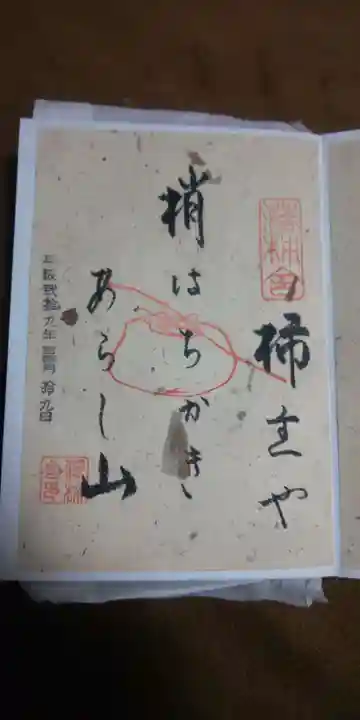 落柿舎
柿主や
梢はちかき
あらし山
平成弐拾九年
拾九日